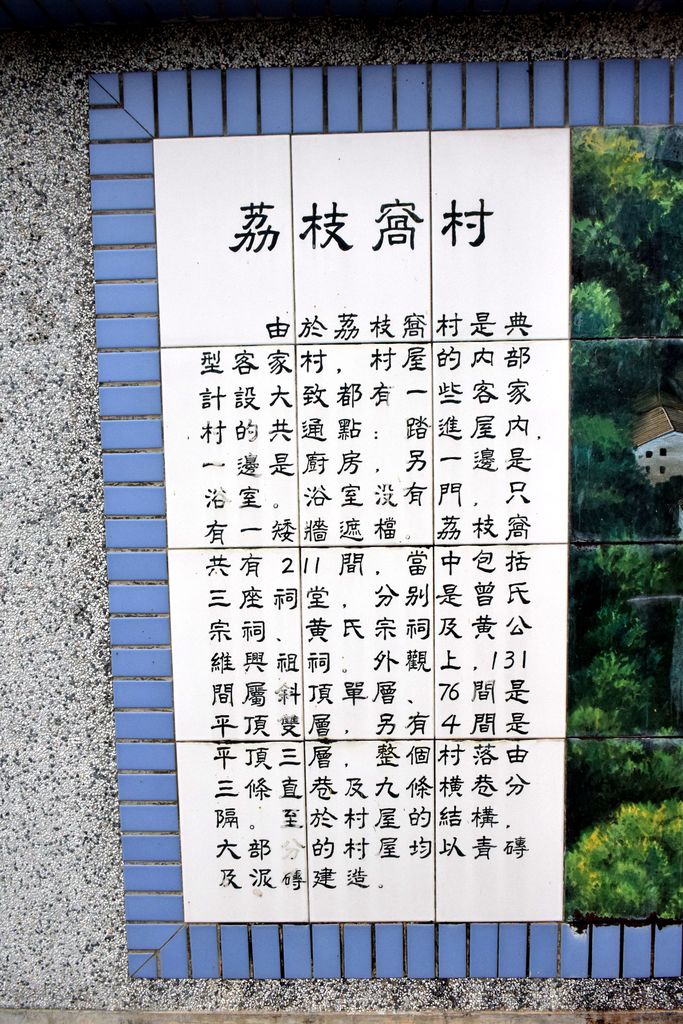 荔枝窩村
由於荔枝窩村是典
型客家村，村屋的內部
計設大致都有一些客家
村的共通點：踏進屋內，
一邊是廚房，另一邊是
浴室。浴室沒有門，只
有一矮牆遮檔。荔枝窩
共有211間，當中包括
三座祠堂，分別是曾氏
宗祠、黃氏宗祠及黃公
維興祖祠。外觀上，131
間屬斜頂單層、76間是
平頂雙層，另有4間是
平頂三層，整個村落由
三條直巷及九條橫巷分
隔。至於村屋的結構，
大部分的村屋均以青磚
及泥磚建造。